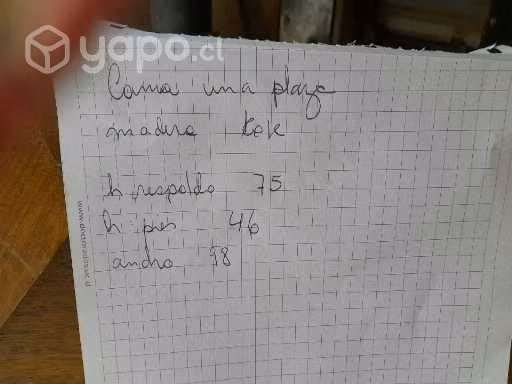 yapo.cl
Cama una plaza
madera
h respaldo 75
h pies 46
ancho 98